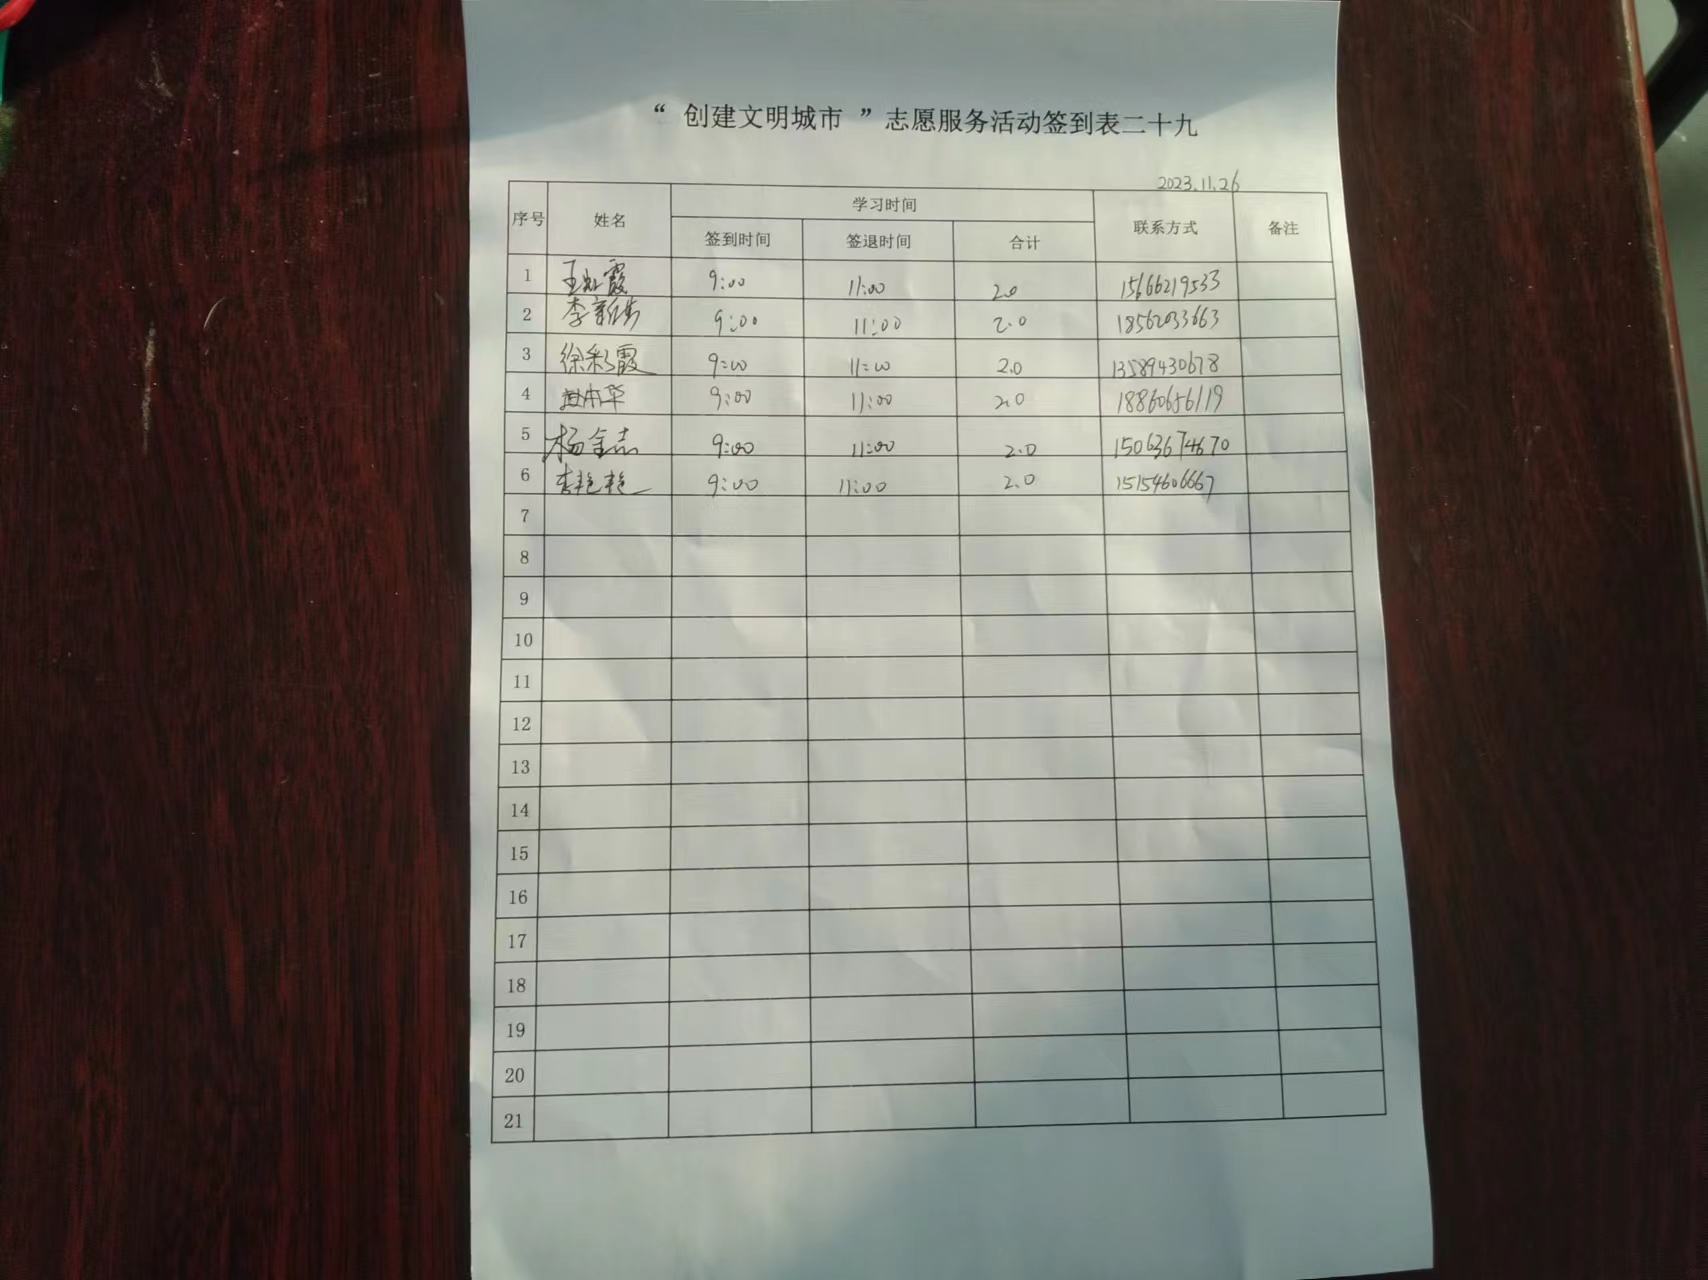 “ 创建文明城市 ”志愿服务活动签到表二十九
2023.11.26
序号 姓名 学习时间 联系方式 备注
签到时间 签退时间 合计
1 王虹霞 9:00 11:00 2.0 15666219533
2 李新 9:00 11:00 2.0 18562033663
3 徐彩霞 9:00 11:00 2.0 13589430678
4 赵本华 9:00 11:00 2.0 18860656119
5 杨金志 9:00 11:00 2.0 15063674670
6 李艳艳 9:00 11:00 2.0 15154606667
7
8
9
10
11
12
13
14
15
16
17
18
19
20
21